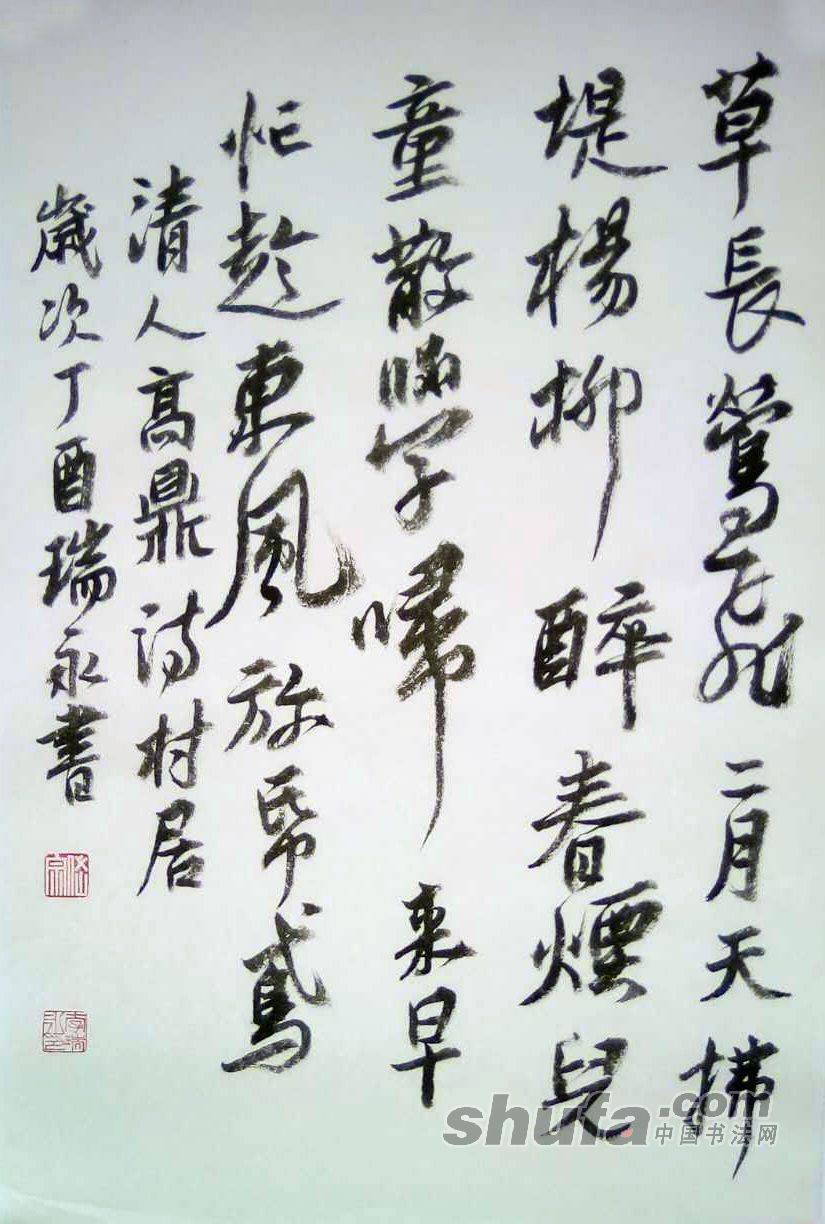 草長鶯飛二月天拂
堤楊柳醉春煙兒
童散學歸來早
忙趁東風放帋鳶
清人高鼎詩村居
歲次丁酉瑞永書
shufa.com
中国书法网